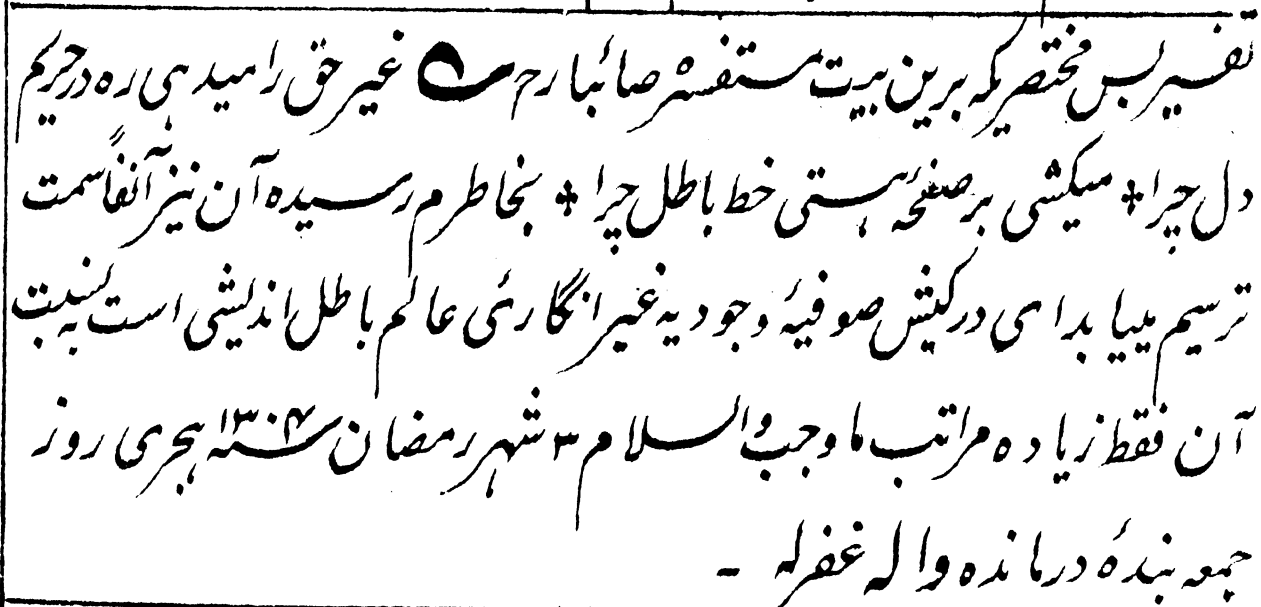 تفسیر بس مختصر یکه برین بیت مستفسره صائبا رح ؎ غیر حق را میدهی ره در حریم
دل چرا * میکشی بر صفحۂ هستی خط باطل چرا * بخاطرم رسیده آن نیز آنفاً سمت
ترسیم مییابد ای در کیش صوفیۂ وجودیه غیر انگارئ عالم باطل اندیشی است به نسبت
آن فقط زیاده مراتب ما وجب والسلام ۳ شهر رمضان سنه ۱۳۰۴ هجری روز
جمعه بندۂ درمانده واله غفرله ـ